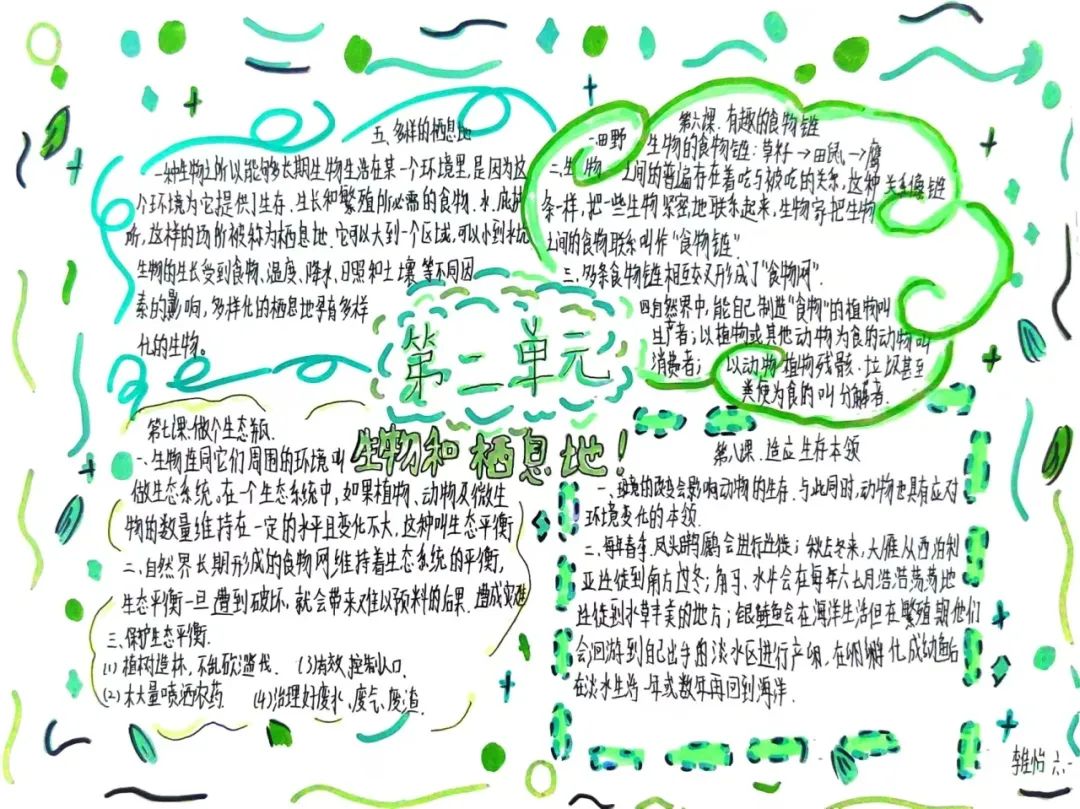 五、多样的栖息地
一种生物之所以能够长期生物生活在某一个环境里,是因为这
个环境为它提供了生存、生长和繁殖所必需的食物、水、庇护
所,这样的场所被称为栖息地.它可以大到一个区域,可以小到水坑
生物的生长受到食物、温度、降水、日照和土壤等不同因
素的影响,多样化的栖息地孕育多样
化的生物。
第六课.有趣的食物链
一.田野 生物的食物链:草籽→田鼠→鹰
二.生物 之间的普遍存在着吃与被吃的关系,这种关系像链
条一样,把一些生物紧密地联系起来,生物家把生物
之间的食物联系叫作"食物链".
三、多条食物链相互交叉形成了"食物网".
四自然界中,能自己制造"食物"的植物叫
生产者;以植物或其他动物为食的动物叫
消费者; 以动物植物残骸、垃圾甚至
粪便为食的叫分解者.
第二单元
生物和栖息地!
第七课.做个生态瓶.
一、生物连同它们周围的环境叫
做生态系统。在一个生态系统中,如果植物、动物及微生
物的数量维持在一定的水平且变化不大,这种叫生态平衡
二、自然界长期形成的食物网维持着生态系统的平衡,
生态平衡一旦遭到破坏,就会带来难以预料的后果.遭成灾难
三、保护生态平衡.
(1)植树造林,不乱砍滥伐. (3)有效控制人口.
(2)不大量喷洒农药 (4)治理好废水、废气、废渣.
第八课.适应生存本领
一、环境的改变会影响动物的生存.与此同时,动物也具有应对
环境变化的本领.
二、每年春季,凤头䴙䴘会进行迁徙;秋去冬来,大雁从西泊利
亚迁徙到南方过冬;角马、水牛会在每年六七月浩浩荡荡地
迁徙到水草丰美的地方;银鲑鱼会在海洋生活但在繁殖期他们
会洄游到自己出生的淡水区进行产卵,在卵孵化成幼鱼后
在淡水生活一年或数年再回到海洋.
六.一